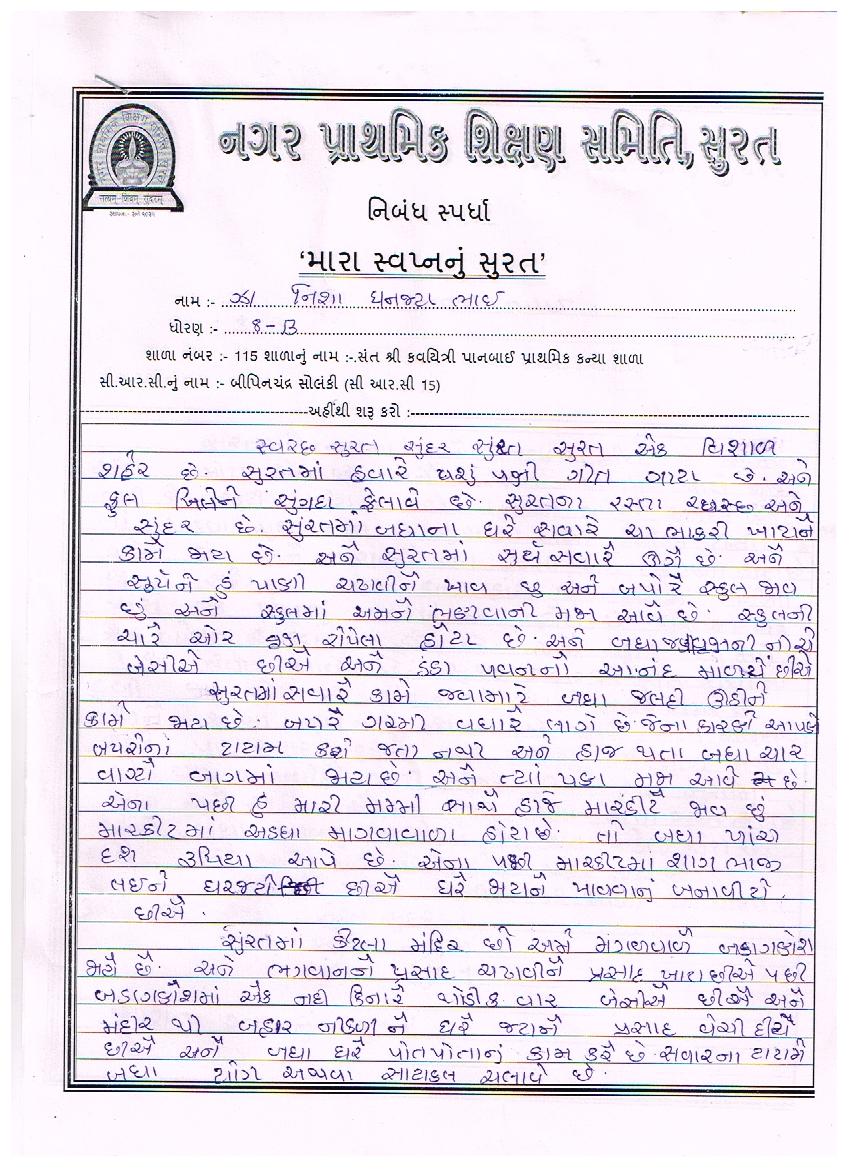 નગર પ્રાથમિક શિક્ષણ સમિતિ, સુરત
સત્યમ્ શિવમ્ સુંદરમ્
નિબંધ સ્પર્ધા
‘મારા સ્વપ્નનું સુરત’
નામ :- ઝા નિશા ધનજય ભાઈ
ધોરણ :- 8-B
શાળા નંબર :- 115 શાળાનું નામ :-.સંત શ્રી કવયિત્રી પાનબાઈ પ્રાથમિક કન્યા શાળા
સી.આર.સી.નું નામ :- બીપિનચંદ્ર સોલંકી (સી આર.સી 15)
અહીંથી શરૂ કરો :-
સ્વરછ સુરત સુંદર સુરત સુરત એક વિશાળ
શહેર છે. સુરતમાં હવારે પશું પક્ષી ગીત ગાય છે. અને
ફુલ ખિલીને સુંગદા ફેલાવે છે. સુરતના રસ્તા સ્વરછ અને
સુંદર છે. સુંરતમાં બધાના ઘરે સવારે ચા ભાકરી ખાયને
કામે જાય છે. અને સુરતમાં સુર્ય સવારે ઊગે છે. અને
સૂર્યને હું પાણી ચઢાવીને ખાવ છુ અને બપોરે સ્કુલ જાવ
છું અને સ્કુલમાં અમને ભણવાની મજા આવે છે. સ્કુલની
ચારે ઓર રોપેલા હોય છે. અને બધાજ નીચે
બેસીએ છીએ અને ઠંડા પવનનો આનંદ માંળયે છીએ
સુરતમાં સવારે કામે જવામાટે બધા જલદી ઊઠીને
કામે જાય છે. બપોરે ગરમી વધારે લાગે છે.જેના કારણે આપણે
બપોરેનાં ટાયમ જતા નથી અને હાજ થતા બધા ચાર
વાગ્યે બાગમાં જાય છે. અને ત્યાં પણ મજા આવે છે.
એના પછી હું મારી મમ્મી સાથે હાંજે મારકીટે જાવ છું
મારકીટમાં અડધા માગવાવાળા હોય છે. તો બધા પાંચ
દશ રુપિયા આપે છે. એના પછી મારકીટમાં શાગ ભાજી
લઈને ઘરજયે છીએ ઘરે જાયને ખાવવાનું બનાવીયે.
છીએ.
સુંરતમાં કેટલા મંદિર છે અમે મંગળવાળે
જાયે છે. અને ભગવાનને પ્રસાદ ચઢાવીને પ્રસાદ ખાય છીએ પછી
એક નદી કિનારે થોડીક વાર બેસીએ છીએ અને
મંદીર થી બહાર નીકળી ને ઘરે જયને પ્રસાદ વેચી દીયે
છીએ અને બધા ઘરે પોતપોતાનું કામ કરે છે. સવારના ટાયમે
બધા યોગ અથવા સાયકલ ચલાવે છે.